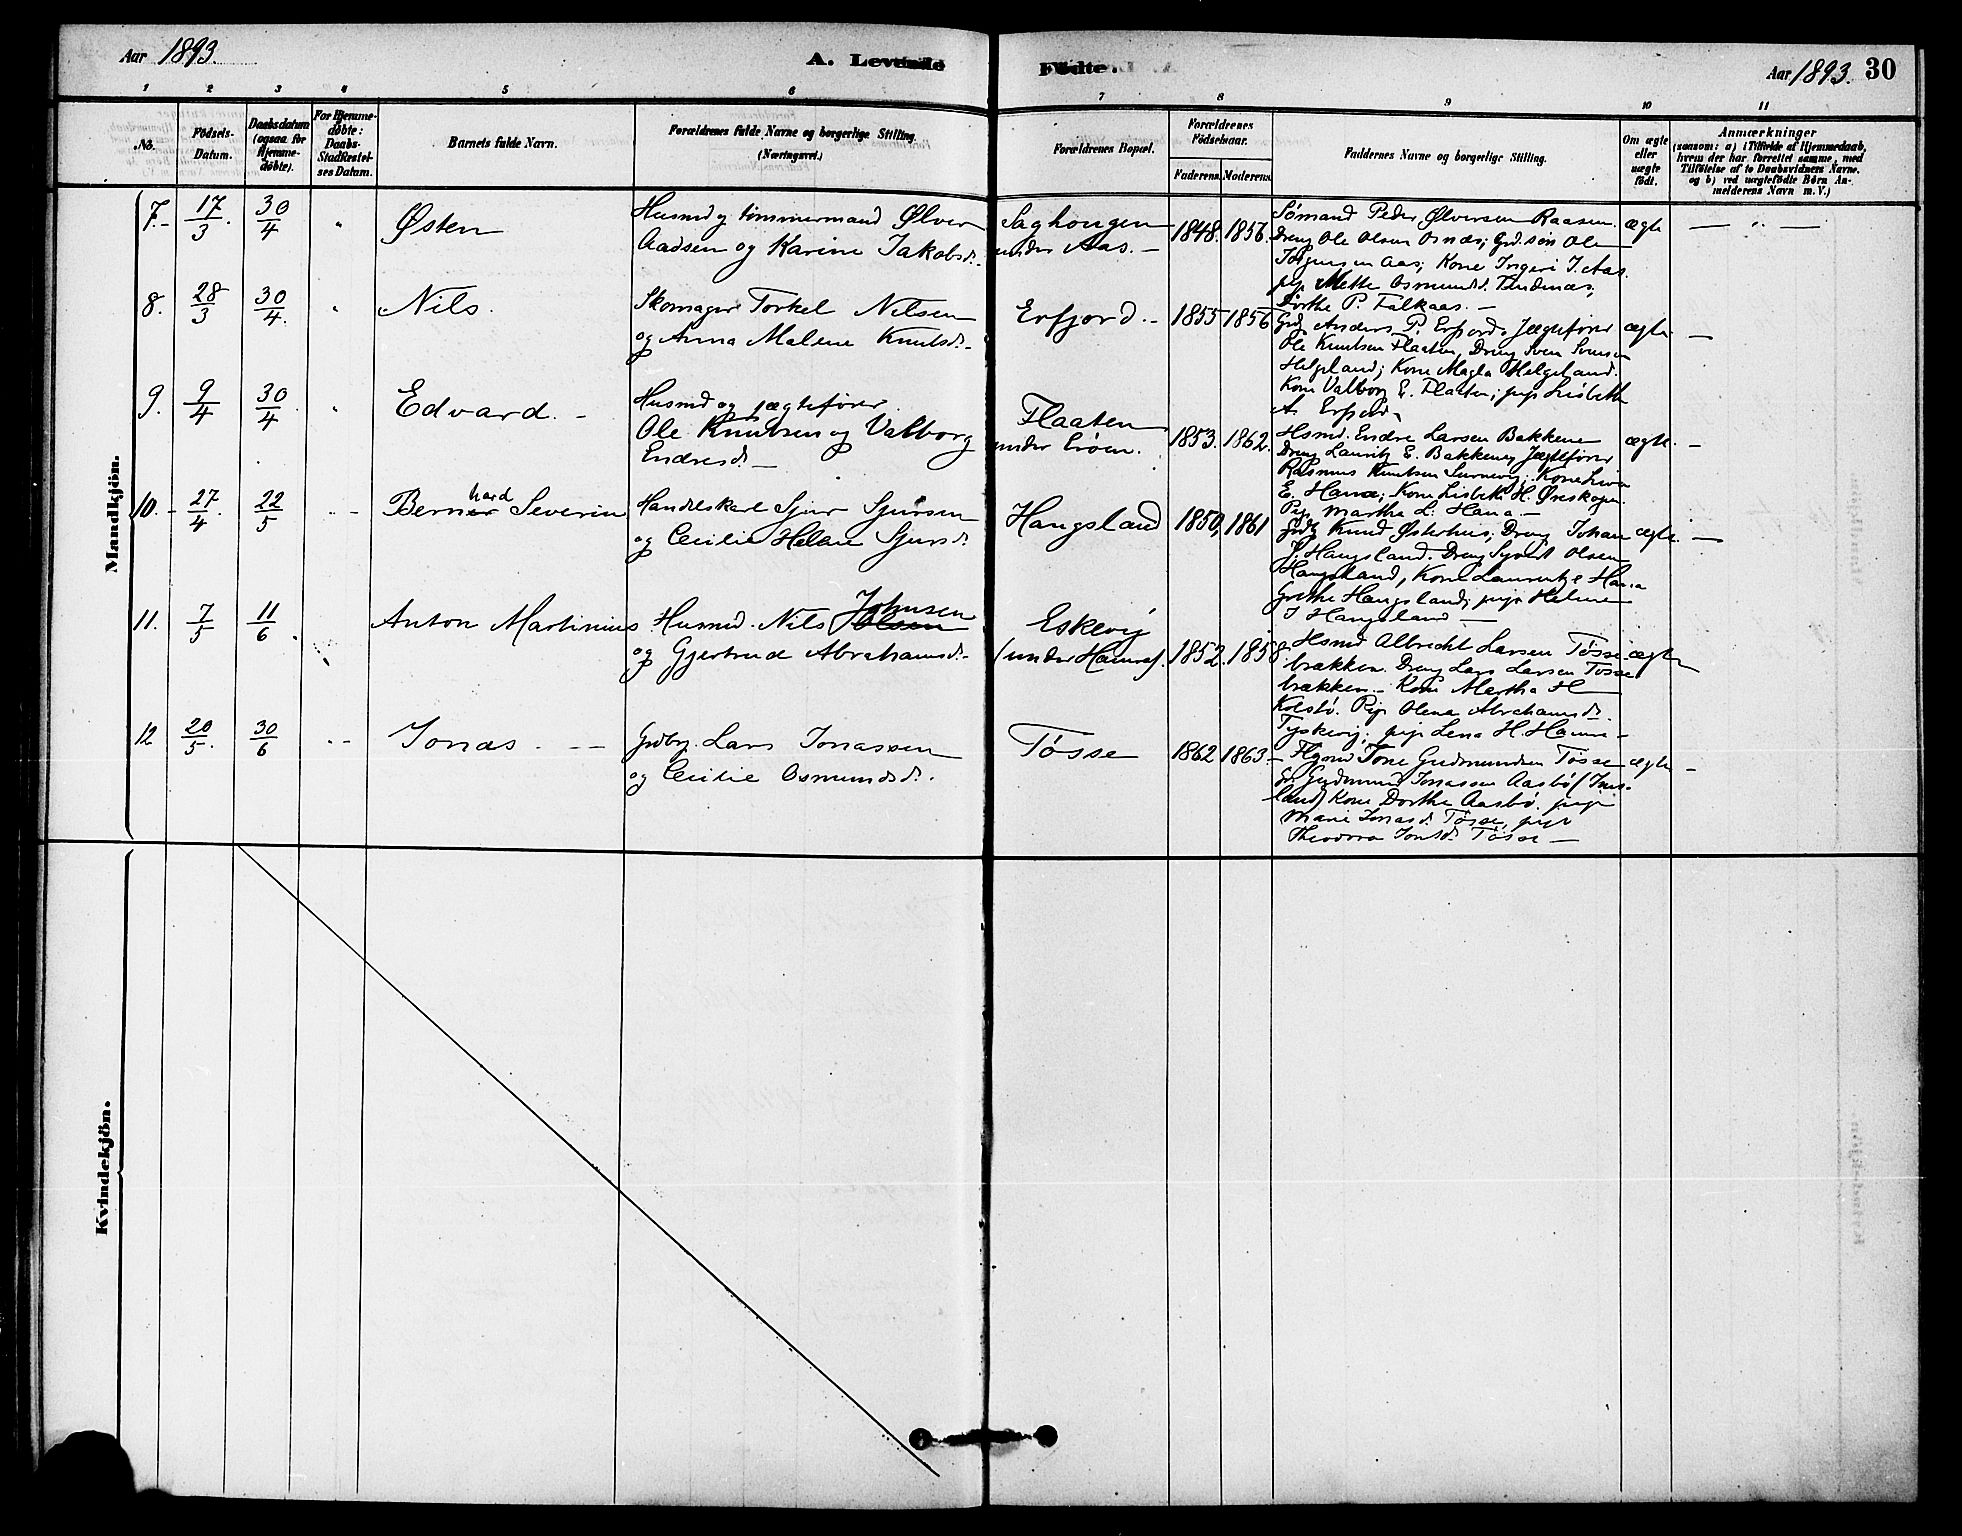 Aar 1893.
A. Levende
Födte.
Aar 1893. 30
1 2 3 4 5 6 7 8 9 10 11
No.
Födsels-Datum.
Daabsdatum (ogsaa for Hjemme-döbte).
For Hjemme-döbte: Daabs-Stadfæstel-ses Datum.
Barnets fulde Navn.
Forældrenes fulde Navne og borgerlige Stilling.
(Næringsvei.)
Forældrenes Bopæl.
Forældrenes Födselsaar.
Faderens. Moderens.
Faddernes Navne og borgerlige Stilling.
Om ægte eller uægte födt.
Anmærkninger
(saasom: a) i Tilfælde af Hjemmedaab,
hvem der har forrettet samme, med
Tilföielse af to Daabsvidners Navne.
og b) ved uægtefödte Börn An-
melderens Navn m. V.)
Mandkjön.
7. 17/3. 30/4 " Østen
Husmd og tømmermand Ølver
Aadsen og Karine Jakobsd.
Saghougen
under Aas. —
1848. 1856.
Sømand Peder Ølversen Raasen.
Dreng Ole Olsen Osnæs; Grd.søn Ole
Torgersen Aas; Kone Ingeri J. Aas
pige Mette Osmundsd. Tindenæs;
Dorthe P. Falkaas. —
ægte — " —
8. 28/3 30/4. " Nils.
Skomager Torkel Nilsen
og Anna Malene Knutsd. —
Erfjord. — 1855 1856
Grdb Anders P. Erfjord. Jægtefører
Ole Knutsen Flaaten, Dreng Sven Svensen
Helgeland; Kone Magla Helgeland.
Kone Valborg E. Flaaten; pige Lisbeth
A. Erfjord.
ægte —
9. 9/4 30/4 " Edvard. —
Husmd og jægtefører
Ole Knutsen og Valborg
Endresd. —
Flaaten
under Erøen.
1853. 1862.
Hsmd. Endre Larsen Bakkene
Dreng Lauritz E. Bakkene; Jægtefører
Rasmus Knutsen Surnevig; Kone Liva
E. Hama; Kone Lisbeth H. Øreskogen.
Pige Martha L. Hama. —
ægte. —
10. 27/4. 22/5 " Bernhard Severin
Handelskarl Sjur Sjursen
og Cecilie Helene Sjursd.
Haugsland 1850, 1861
Grdb Knud Østerhus; Dreng Johan
J. Haugsland. Dreng Sjvert Olsen
Haugsland, Kone Laurentze Hama
Grethe Haugsland; pige Helene
J Haugsland —
ægte. —
11. 7/5 11/6. Anton Martinius
Husmd. Nils Johnsen Olsen
og Gjertrud Abrahamsd. —
Eskevig
(under Hamre). 1852. 1858
Hsmd Albrecht Larsen Tøsse-
brækken. Dreng Lars Larsen Tøsse
brækken. Kone Martha H
Kolsbø. Pige Olena Abrahamsd.
Tyskevig; pige Lena H. Hamre —
ægte —
12 20/5. 30/6 " Jonas. —
Grdbr. Lars Jonassen
og Cecilie Osmundsd.
Tøsse 1862 1863
Flgmd Tone Gudmundsen Tøsse
Gr. Gudmund Jonassen Aasbø (Imis-
land) Kone Dorthe Aasbø. pige
Marie Jonasd. Tøsse, pige
Theodora Jonsd. Tøsse —
ægte —
Kvindekjön.